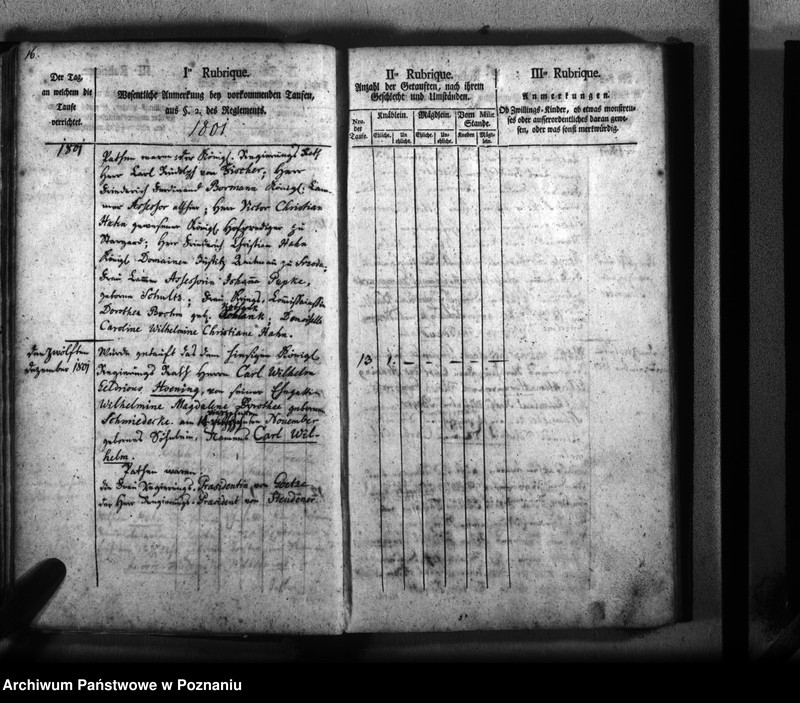 16.
Der Tag,
an welchem die
Taufe
verrichtet.
Iᵉ Rubrique.
Wesentliche Anmerkung bey vorkommenden Taufen,
aus §. 2. des Reglements.
1801
1801
Pathen waren der Königl. Regierungs Rath
Herr Carl Rudolph von Fischer; Herr
Friederich Ferdinand Bormann Königl. Cam-
mer Assessor allhier; Herr Victor Christian
Hahn gewesener Königl Hofprediger zu
Stargard; Herr Friederich Christian Hahn
Königl. Domainen Justitz Amtmann zu
Frau Assessorin Johanna Papke,
geborne Schultz; Frau
Dorothea Boehm geb. Demoiselle
Caroline Wilhelmine Christiane Hahn.
den Zwölften
Dezember 1801
Wurde getauft das dem hiesigen Königl
Regierungs Rath Herrn Carl Wilhelm
Hoening, von seiner Ehegattin
Wilhelmine Magdalene Dorothee geborne
Schmiedecke am November
geborne Söhnlein, Namens Carl Wil-
helm.
Pathen waren
die Frau Regierungs-Präsidentin von Goetze
der Herr Regierungs-Präsident von Steudener
IIᵉ Rubrique.
Anzahl der Getauften, nach ihrem
Geschlecht und Umständen.
Nro.
der
Taufe.
Knäblein.
Mägdlein.
Vom Milit.
Stande.
Ehliche.
Un
ehliche.
Ehliche.
Un-
ehliche.
Knaben
Mägd-
lein.
13 1. – – – – –
IIIᵉ Rubrique.
Anmerkungen.
Ob Zwillings-Kinder, ob etwas monströ-
ses oder ausserordentliches daran gewe-
sen, oder was sonst merkwürdig.
Archiwum Państwowe w Poznaniu